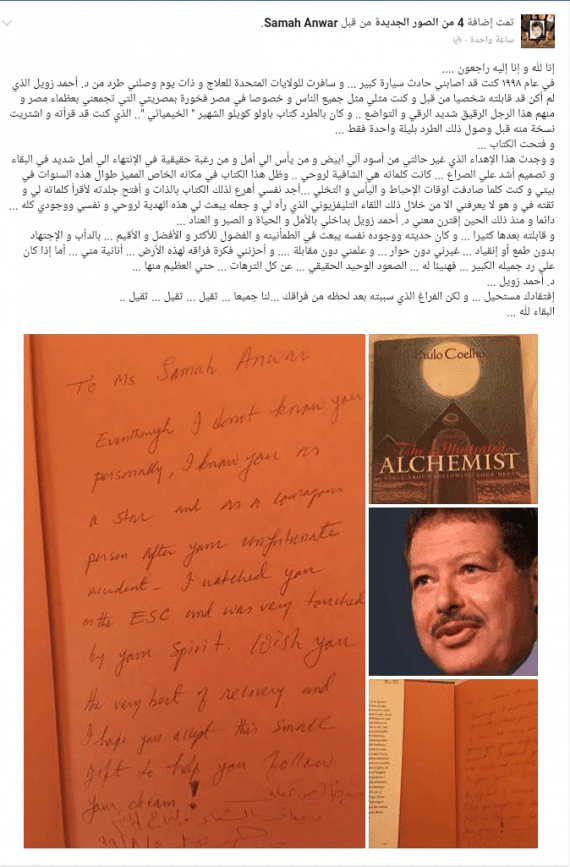 تمت إضافة 4 من الصور الجديدة من قبل Samah Anwar.
ساعة واحدة
إنا لله و إنا إليه راجعون ....
في عام ١٩٩٨ كنت قد اصابني حادث سيارة كبير ... و سافرت للولايات المتحدة للعلاج و ذات يوم وصلني طرد من د. أحمد زويل الذي
لم أكن قد قابلته شخصيا من قبل و كنت مثلي مثل جميع الناس و خصوصا في مصر فخورة بمصريتي التي تجمعني بعظماء مصر و
منهم هذا الرجل الرقيق شديد الرقي و التواضع .. و كان بالطرد كتاب باولو كويلو الشهير " الخيميائي ".. الذي كنت قد قرأته و اشتريت
نسخة منه قبل وصول ذلك الطرد بليلة واحدة فقط ...
و فتحت الكتاب ...
و وجدت هذا الإهداء الذي غير حالتي من أسود آلي ابيض و من يأس الي أمل و من رغبة حقيقية في الإنتهاء الي أمل شديد في البقاء
و تصميم أشد علي الصراع ... كانت كلماته هي الشافية لروحي .. وظل هذا الكتاب في مكانه الخاص المميز طوال هذه السنوات في
بيتي و كنت كلما صادفت اوقات الإحباط و اليأس و التخلي ...أجد نفسي أهرع لذلك الكتاب بالذات و أفتح جلدته لأقرأ كلماته لي و
ثقته في و هو لا يعرفني الا من خلال ذلك اللقاء التليفزيوني الذي رآه لي و جعله يبعث لي هذه الهدية لروحي و نفسي ووجودي كله ...
دائما و منذ ذلك الحين إقترن معني د. أحمد زويل بداخلي بالأمل و الحياة و الصبر و العناد ...
و قابلته بعدها كثيرا ... و كان حديثه ووجوده نفسه يبعث في الطمأنينه و الفضول للأكثر و الأفضل و الأقيم ... بالدأب و الإجتهاد
بدون طمع أو إنقياد ... غيرني دون حوار ... و علمني دون مقابلة .... و أحزنني فكرة فراقه لهذه الأرض ... أنانية مني ... أما إذا كان
علي رد جميله الكبير ... فهنيئا له ... الصعود الوحيد الحقيقي ... عن كل الترهات ... حتي العظيم منها ...
د. أحمد زويل ...
إفتقادك مستحيل ... و لكن الفراغ الذي سببته بعد لحظه من فراقك ...لنا جميعا ... ثقيل ... ثقيل ... ثقيل ..
البقاء لله ...
To Ms Samah Anwar
Eventhough I donot know you
personally, I know you as
a star and as a courageous
person after your unfortunate
accident - I watched you
on the ESC and was very touched
by your spirit. Wish you
the very best of recovery and
I hope you accept this small
gift to help you follow
your dream!
Paulo Coelho
The Illustrated
ALCHEMIST
A FABLE ABOUT FOLLOWING YOUR DREAM